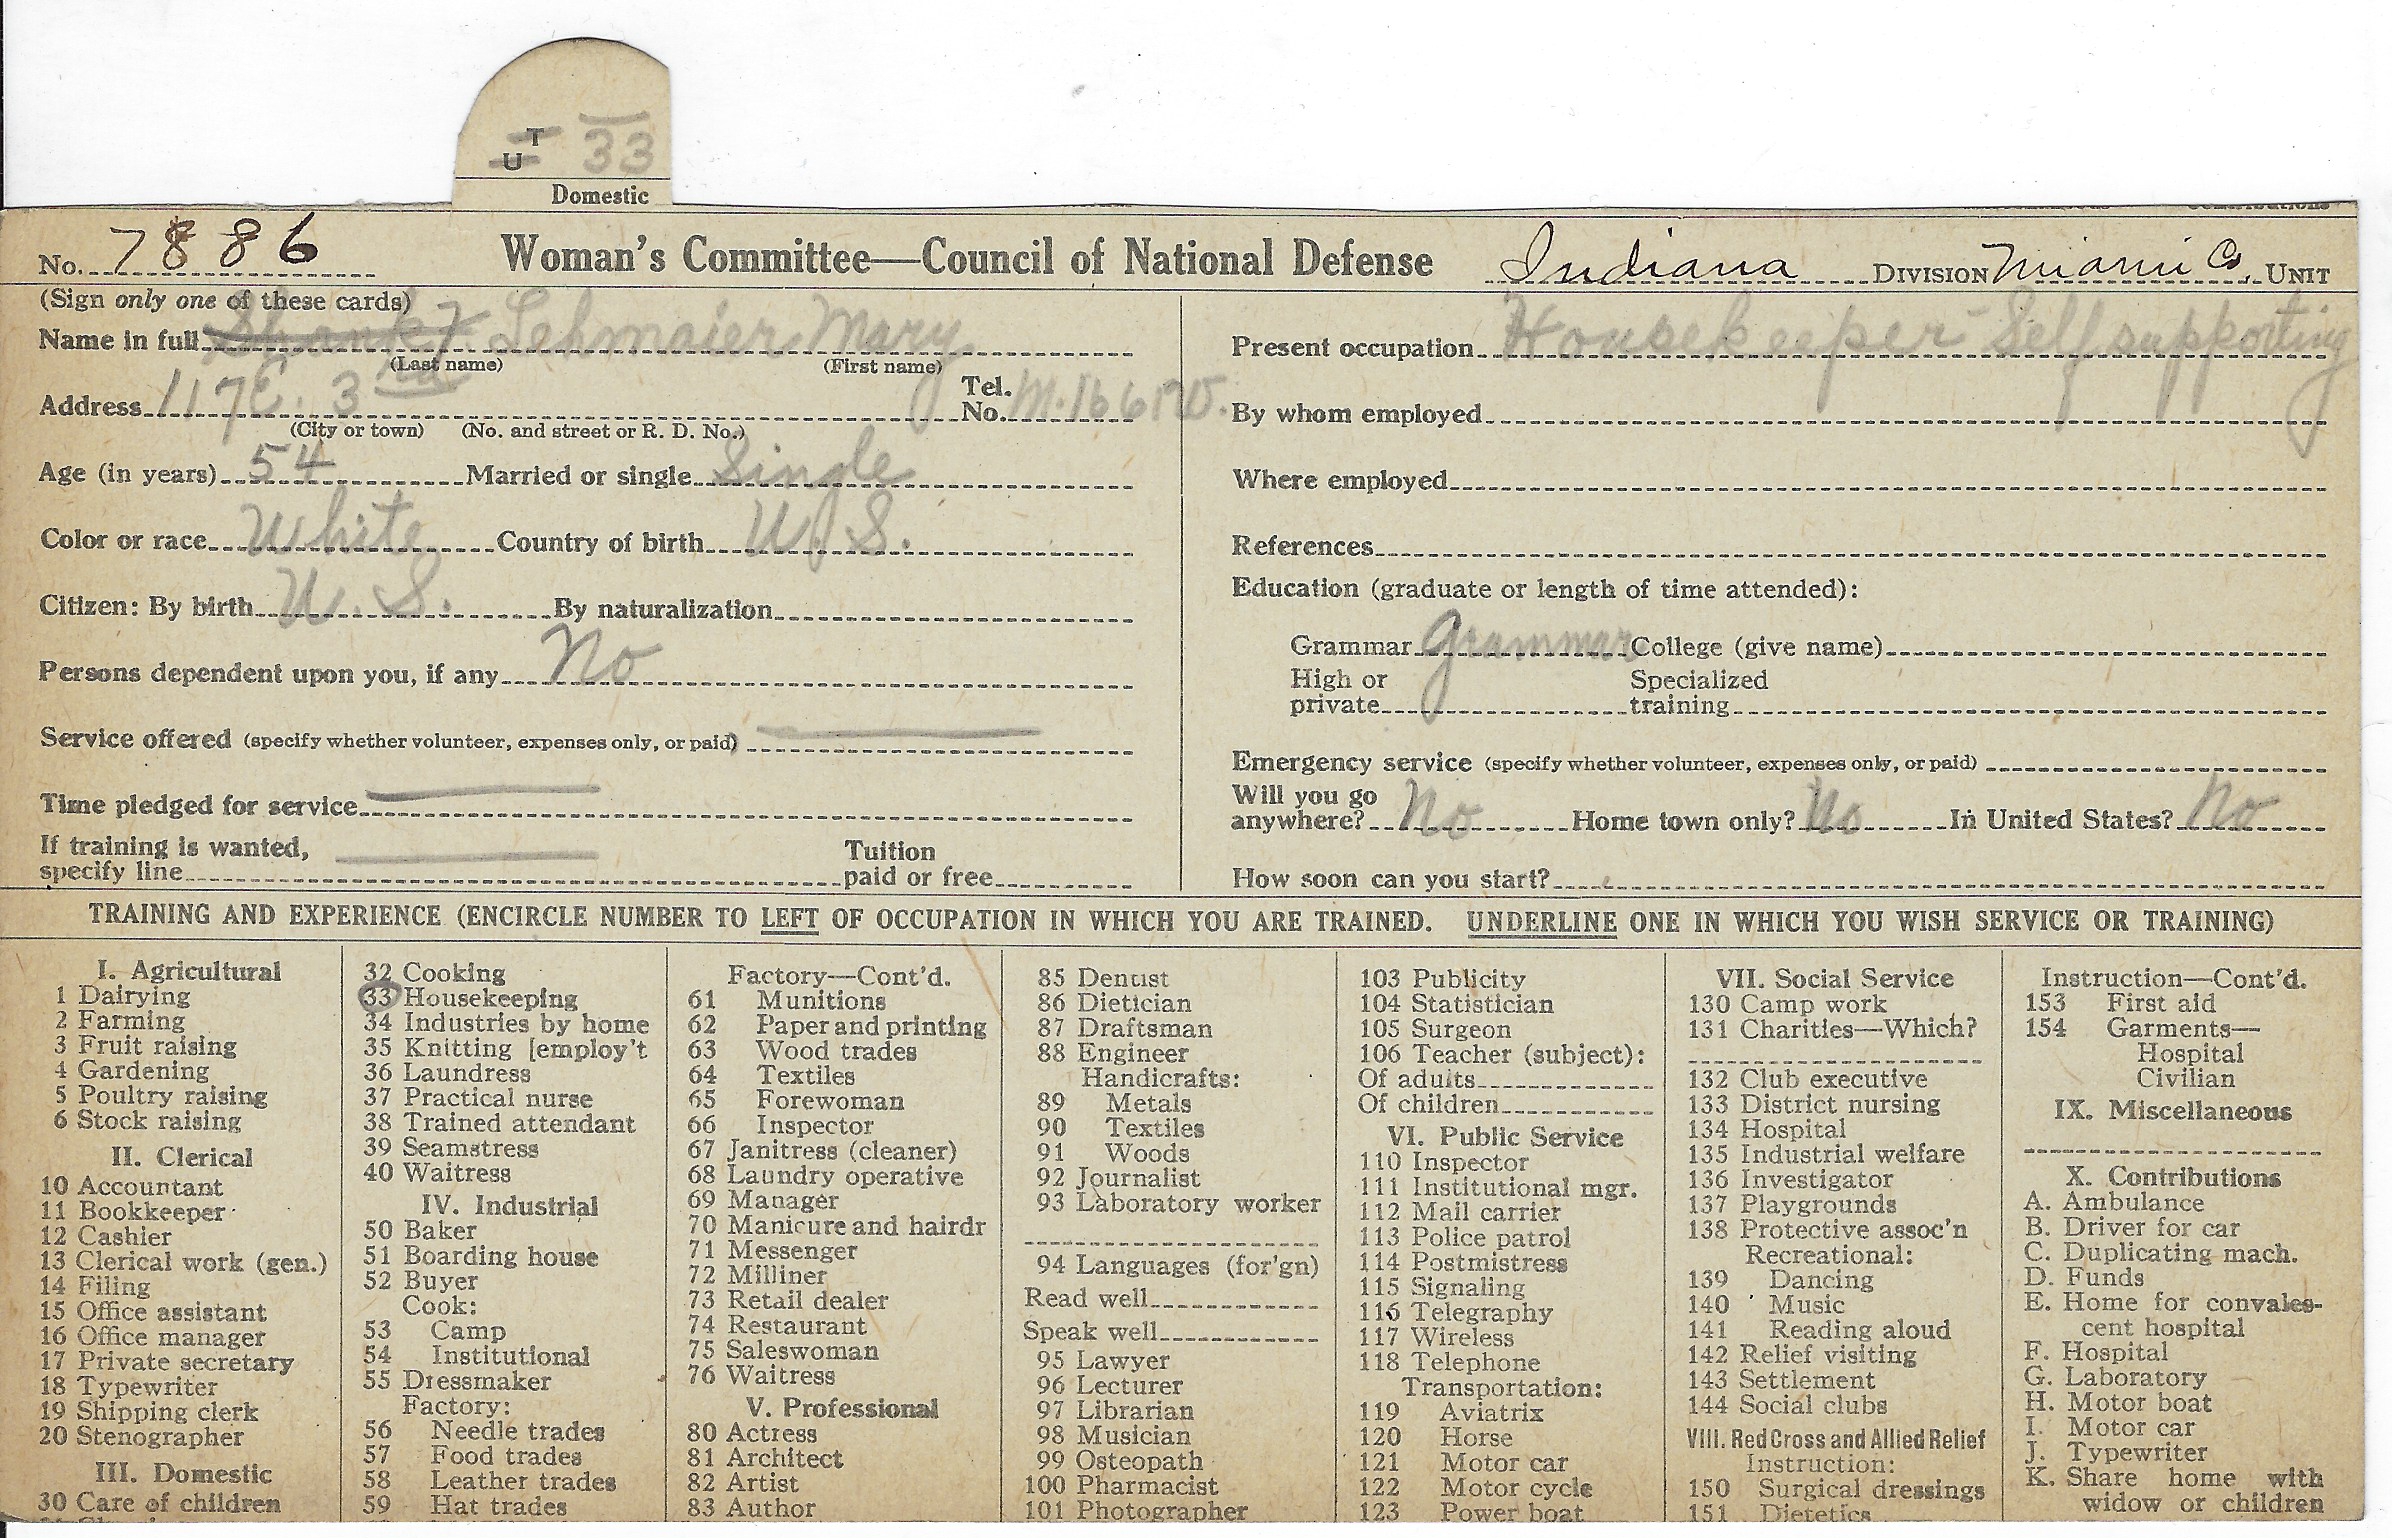 T
U 33
Domestic
No. 7886 Woman's Committee—Council of National Defense Indiana DIVISION Miami Co. UNIT
(Sign only one of these cards)
Name in full Lehmaier Mary
(Last name) (First name)
Address 117 E. 3rd Tel. No.
(City or town) (No. and street or R. D. No.)
Age (in years) 54 Married or single Single
Color or race White Country of birth U.S.
Citizen: By birth U.S. By naturalization
Persons dependent upon you, if any No
Service offered (specify whether volunteer, expenses only, or paid)
Time pledged for service
If training is wanted,
specify line Tuition paid or free
Present occupation Housekeeper Self supporting
By whom employed
Where employed
References
Education (graduate or length of time attended):
Grammar Grammar College (give name)
High or private Specialized training
Emergency service (specify whether volunteer, expenses only, or paid)
Will you go
anywhere? No Home town only? No In United States? No
How soon can you start?
TRAINING AND EXPERIENCE (ENCIRCLE NUMBER TO LEFT OF OCCUPATION IN WHICH YOU ARE TRAINED. UNDERLINE ONE IN WHICH YOU WISH SERVICE OR TRAINING)
I. Agricultural
1 Dairying
2 Farming
3 Fruit raising
4 Gardening
5 Poultry raising
6 Stock raising
II. Clerical
10 Accountant
11 Bookkeeper
12 Cashier
13 Clerical work (gen.)
14 Filing
15 Office assistant
16 Office manager
17 Private secretary
18 Typewriter
19 Shipping clerk
20 Stenographer
III. Domestic
30 Care of children
32 Cooking
33 Housekeeping
34 Industries by home
35 Knitting [employ't
36 Laundress
37 Practical nurse
38 Trained attendant
39 Seamstress
40 Waitress
IV. Industrial
50 Baker
51 Boarding house
52 Buyer
Cook:
53 Camp
54 Institutional
55 Dressmaker
Factory:
56 Needle trades
57 Food trades
58 Leather trades
59 Hat trades
Factory—Cont'd.
61 Munitions
62 Paper and printing
63 Wood trades
64 Textiles
65 Forewoman
66 Inspector
67 Janitress (cleaner)
68 Laundry operative
69 Manager
70 Manicure and hairdr
71 Messenger
72 Milliner
73 Retail dealer
74 Restaurant
75 Saleswoman
76 Waitress
V. Professional
80 Actress
81 Architect
82 Artist
83 Author
85 Dentist
86 Dietician
87 Draftsman
88 Engineer
Handicrafts:
89 Metals
90 Textiles
91 Woods
92 Journalist
93 Laboratory worker
94 Languages (for'gn)
Read well
Speak well
95 Lawyer
96 Lecturer
97 Librarian
98 Musician
99 Osteopath
100 Pharmacist
101 Photographer
103 Publicity
104 Statistician
105 Surgeon
106 Teacher (subject):
Of adults
Of children
VI. Public Service
110 Inspector
111 Institutional mgr.
112 Mail carrier
113 Police patrol
114 Postmistress
115 Signaling
116 Telegraphy
117 Wireless
118 Telephone
Transportation:
119 Aviatrix
120 Horse
121 Motor car
122 Motor cycle
123 Power boat
VII. Social Service
130 Camp work
131 Charities—Which?
132 Club executive
133 District nursing
134 Hospital
135 Industrial welfare
136 Investigator
137 Playgrounds
138 Protective assoc'n
Recreational:
139 Dancing
140 Music
141 Reading aloud
142 Relief visiting
143 Settlement
144 Social clubs
VIII. Red Cross and Allied Relief
Instruction:
150 Surgical dressings
151 Dietetics
Instruction—Cont'd.
153 First aid
154 Garments—
Hospital
Civilian
IX. Miscellaneous
X. Contributions
A. Ambulance
B. Driver for car
C. Duplicating mach.
D. Funds
E. Home for convales-
cent hospital
F. Hospital
G. Laboratory
H. Motor boat
I. Motor car
J. Typewriter
K. Share home with
widow or children